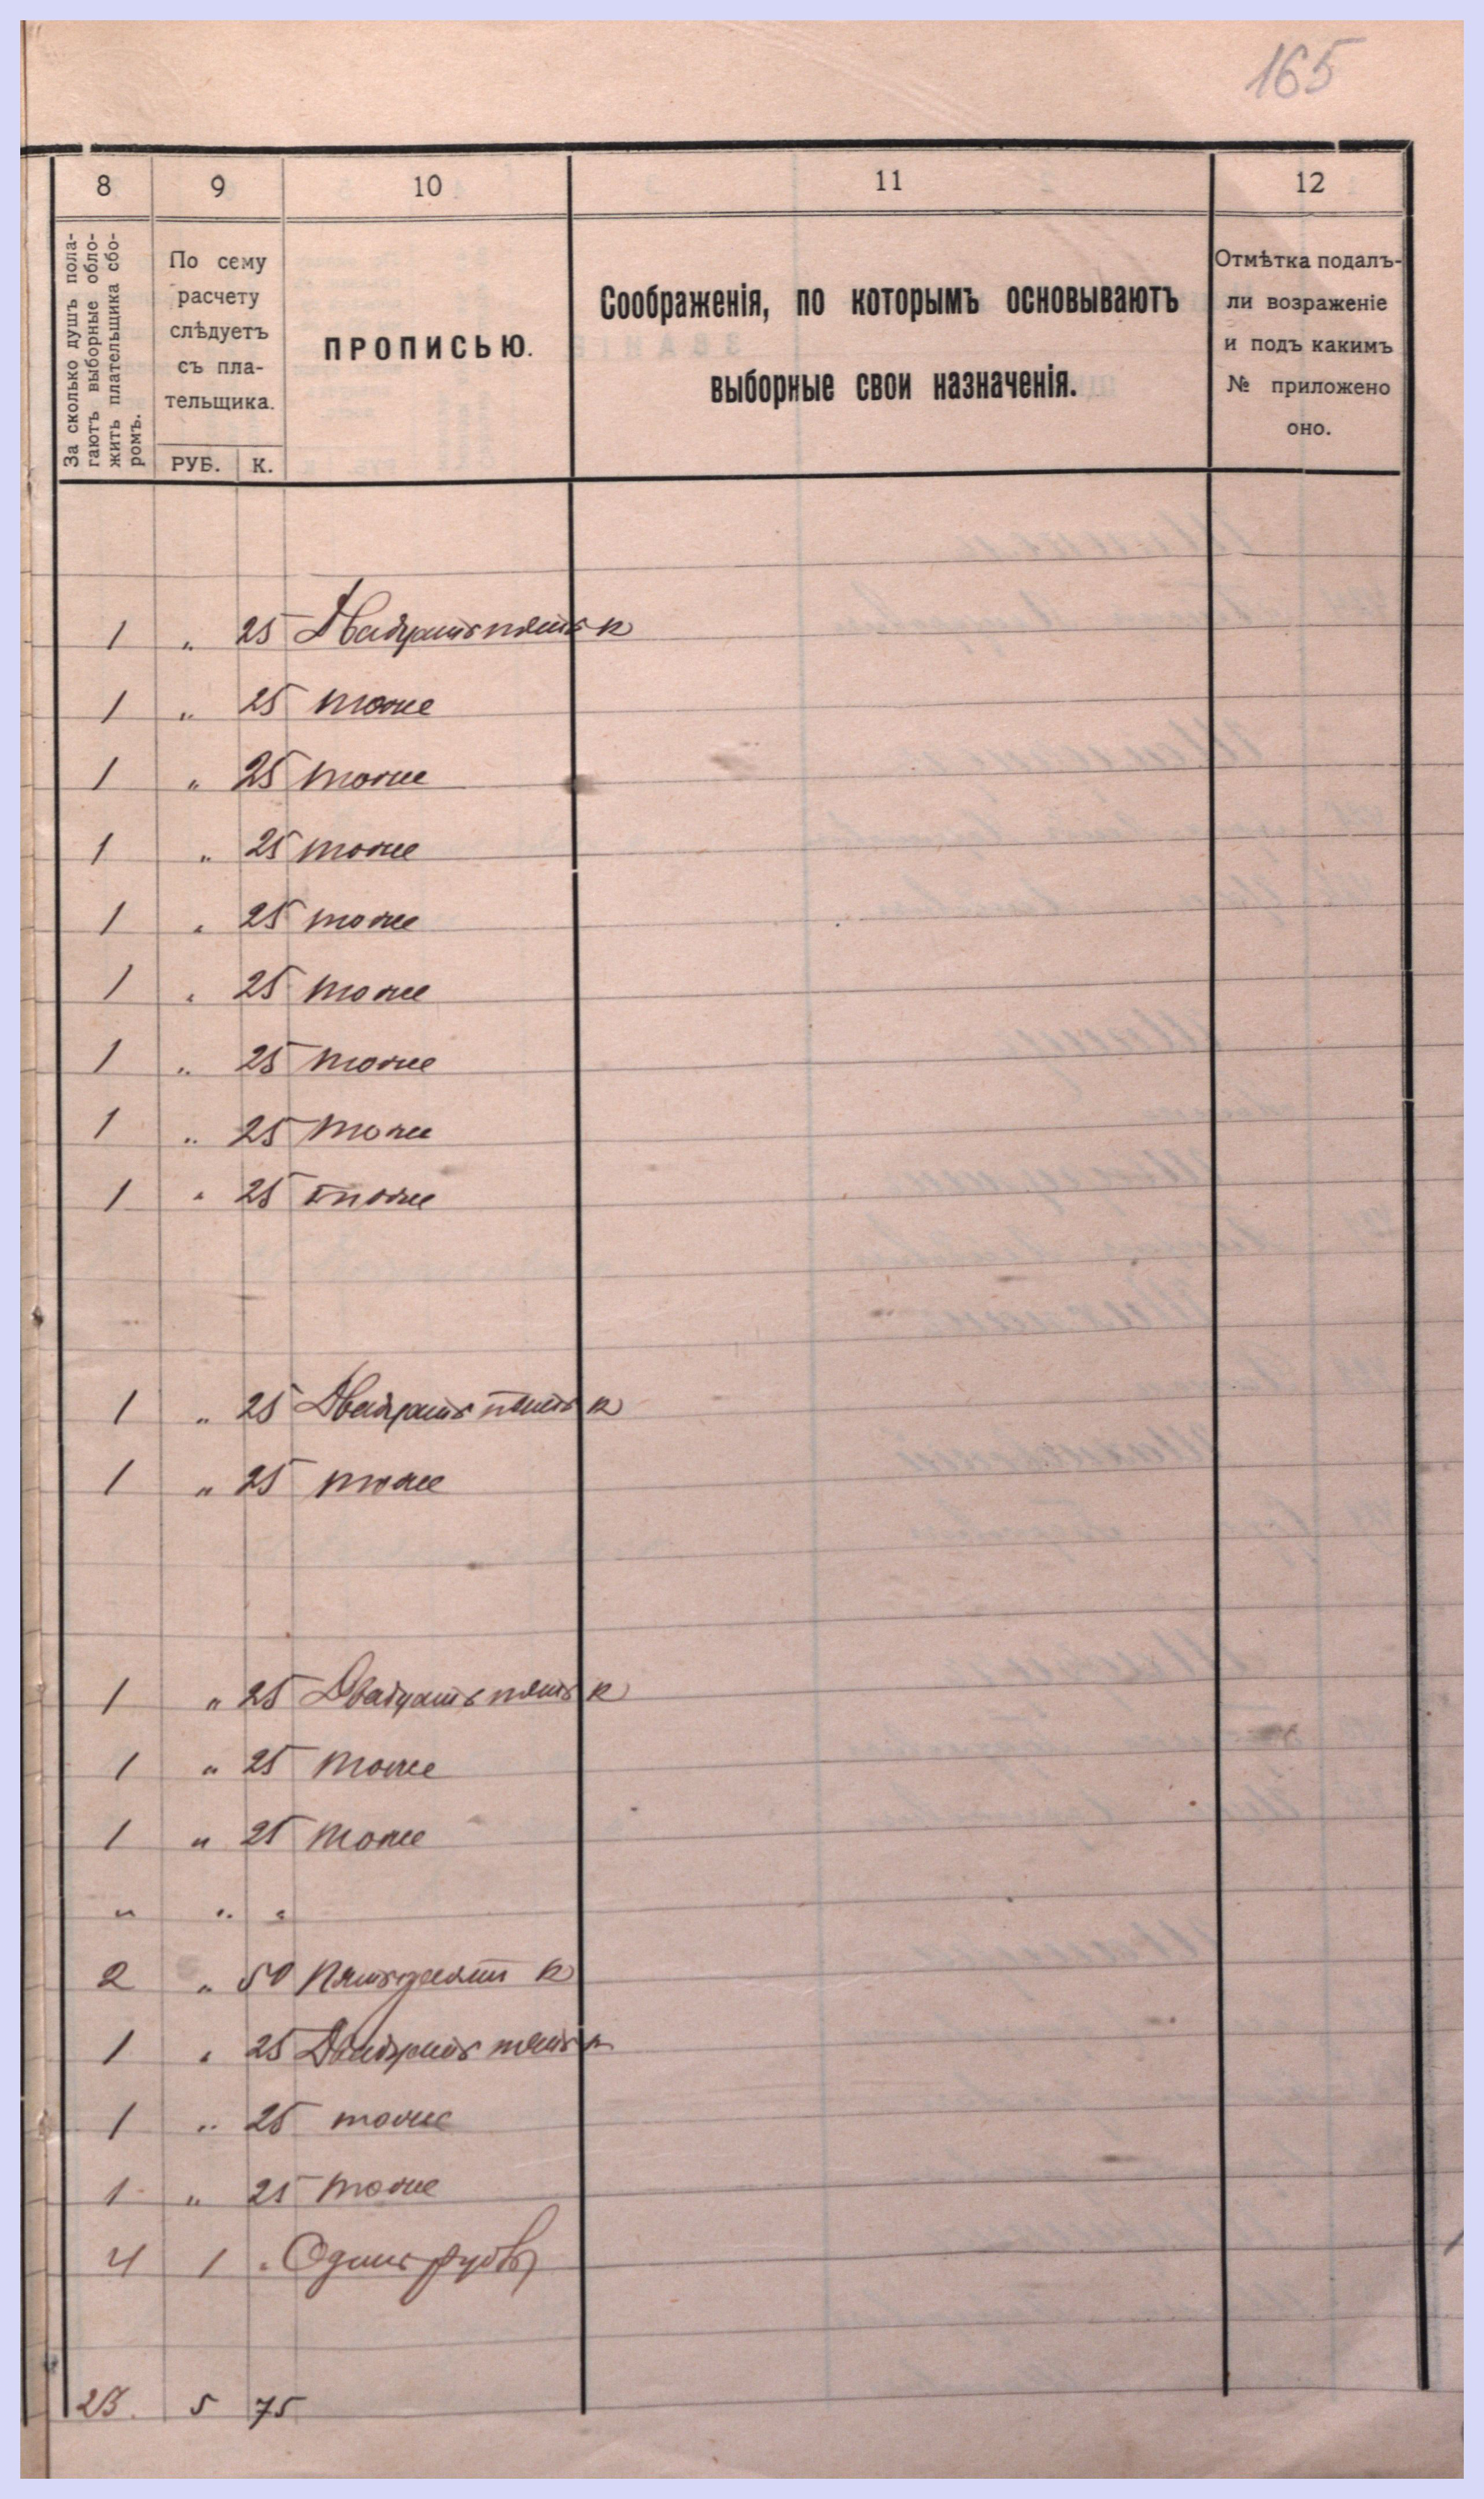 165
8 9 10 11 12
За сколько душъ пола-
гаютъ выборные обло-
жить плательщика сбо-
ромъ.
По сему
расчету
слѣдуетъ
съ пла-
тельщика.
РУБ. К.
ПРОПИСЬЮ.
Соображенія, по которымъ основываютъ
выборные свои назначенія.
Отмѣтка подалъ-
ли возраженіе
и подъ какимъ
№ приложено
оно.
1 „ 25 Двадцать пять к
1 „ 25 тоже
1 „ 25 тоже
1 „ 25 тоже
1 „ 25 тоже
1 „ 25 тоже
1 „ 25 тоже
1 „ 25 тоже
1 „ 25 тоже
1 „ 25 Двадцать пять к
1 „ 25 тоже
1 „ 25 Двадцать пять к
1 „ 25 тоже
1 „ 25 тоже
„ „ „
2 „ 50 Пятьдесят к
1 „ 25 Двадцать пять к
1 „ 25 тоже
1 „ 25 тоже
4 1 „ Одинъ рубль
23. 5 75